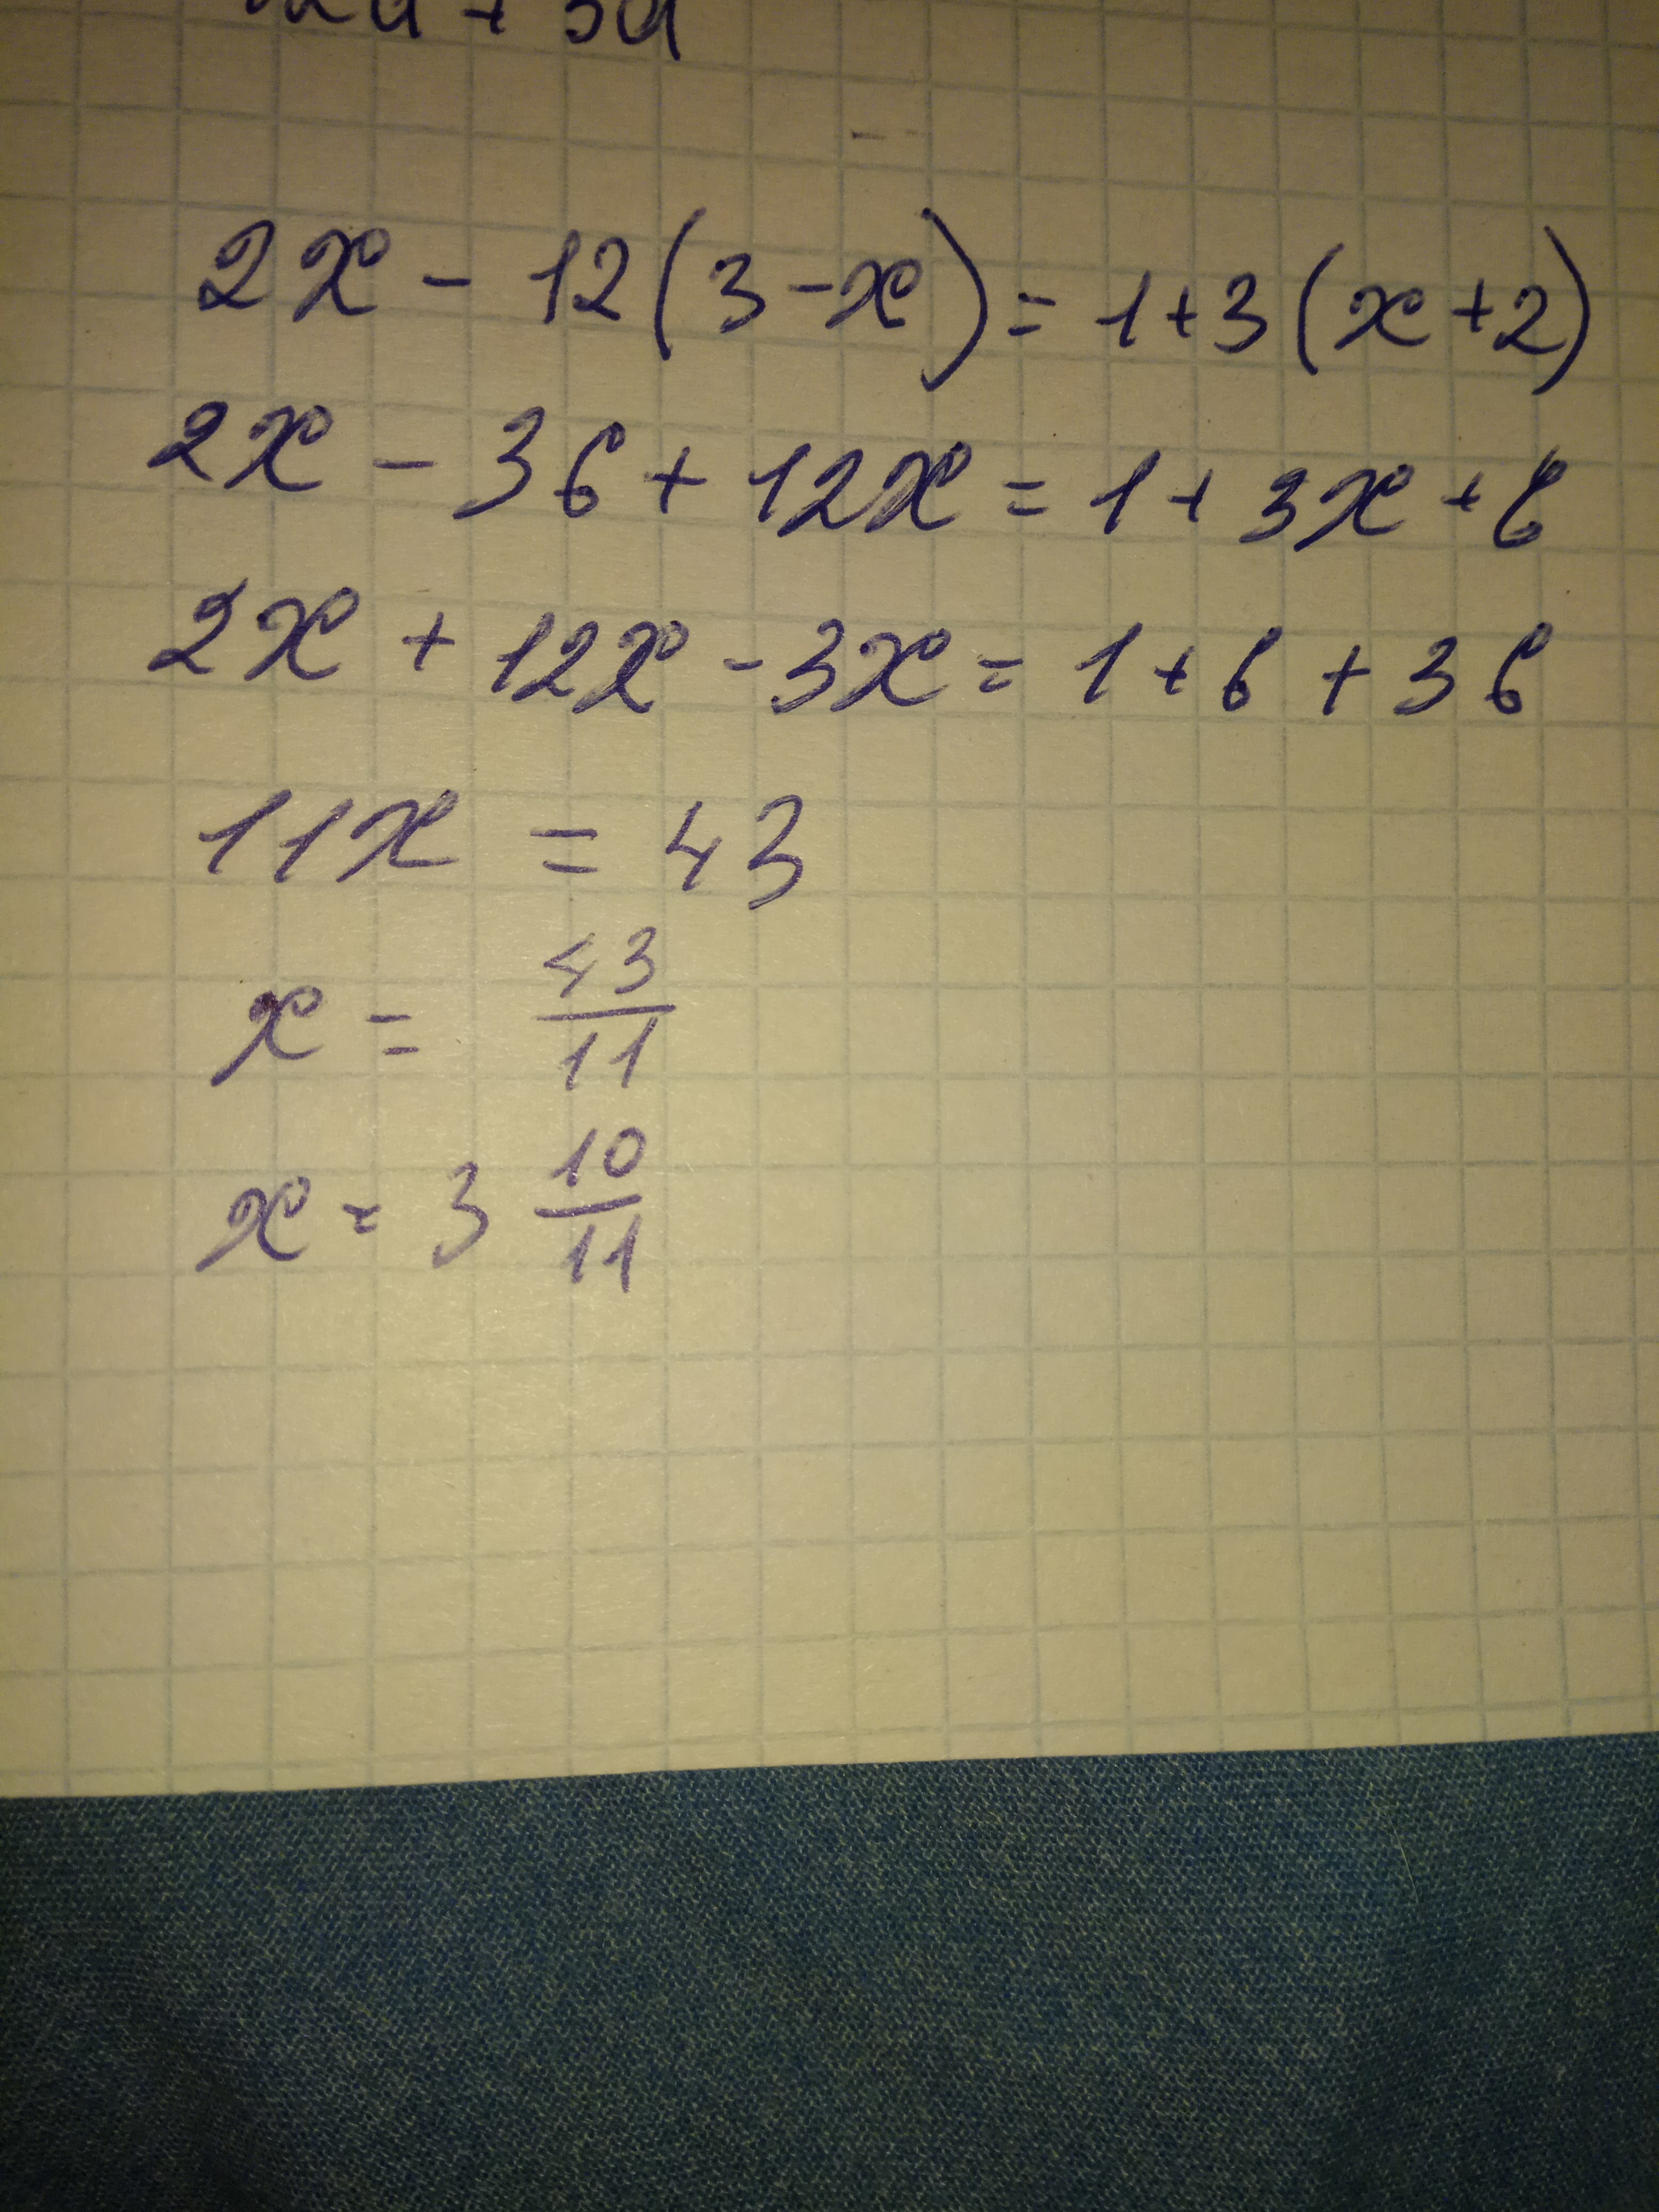 2x - 12(3-x) = 1+3(x+2)
2x - 36 + 12x = 1 + 3x + 6
2x + 12x - 3x = 1 + 6 + 36
11x = 43
x = 43/11
x = 3 10/11